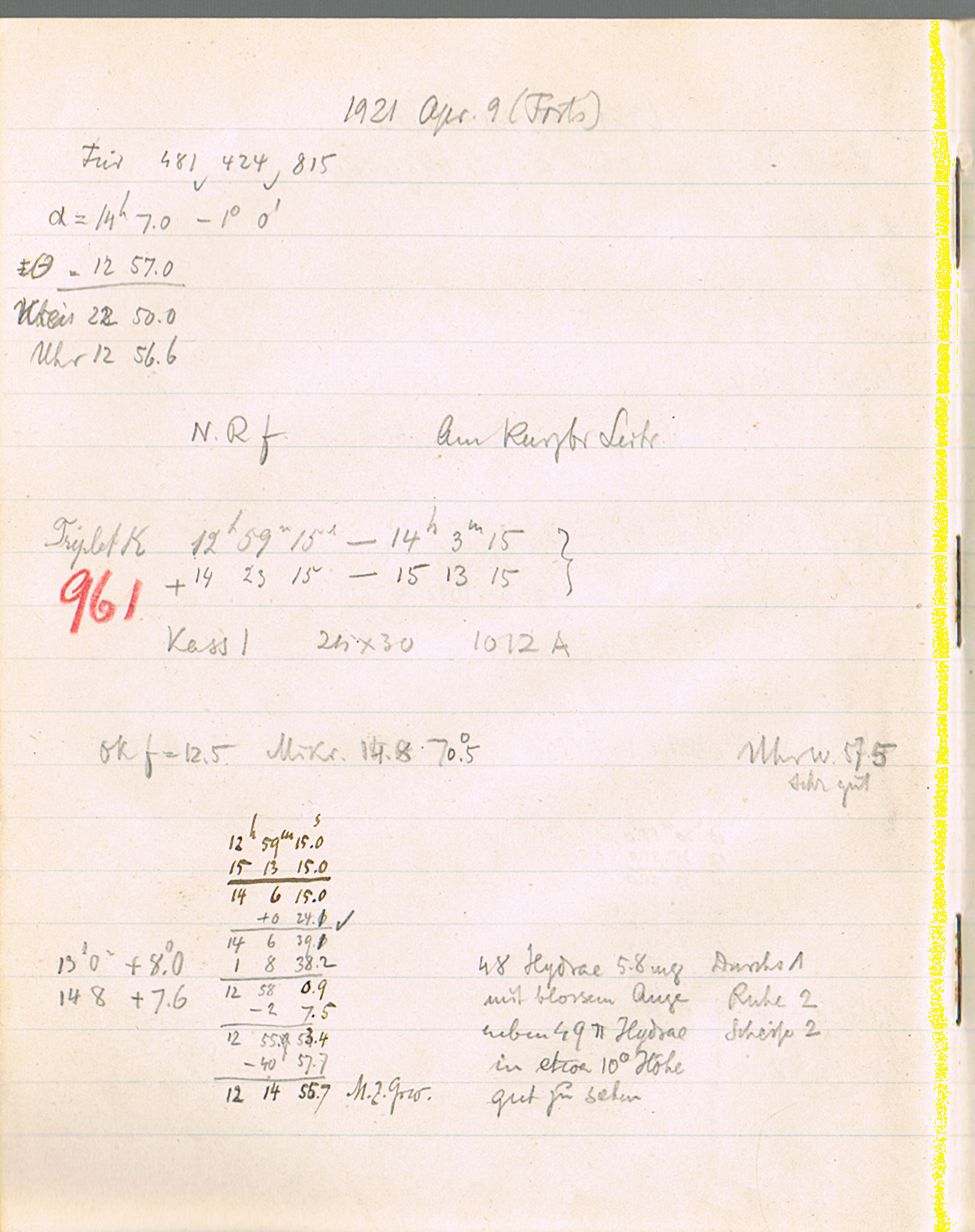 1921 Apr. 9 (Forts)
Für 481, 424, 815
α = 14h 7.0 − 1° 0'
θ = 12 57.0
Kreis 22 50.0
Uhr 12 56.6
N. R f. Am Kurzbr Seite
Triplet K 12h 59m 15s — 14h 3m 15 }
961 + 14 23 15 — 15 13 15 }
Kass 1 24×30 1012 A
Ok f = 12.5 Mikr. 14.8 70°.5 Uhr w. 57.5
sehr gut
12h 59m 15.0s
15 13 15.0
14 6 15.0
+0 24.1 ✓
14 6 39.1
13h 0m +8°.0 1 8 38.2 48 Hydrae 5.8 mg Durchs 1
14 8 +7.6 12 58 0.9 mit blossem Auge Ruhe 2
−2 7.5 neben 49 π Hydrae Schärfe 2
12 55 53.4 in etwa 10° Höhe
−40 57.7 gut zu sehen
12 14 55.7 M.Z. Grw.